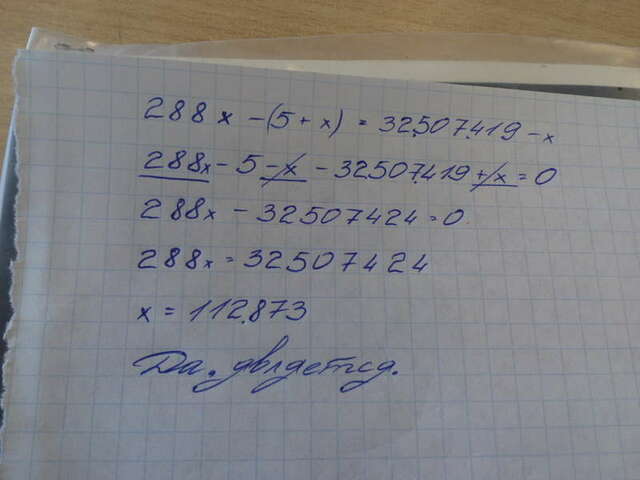 288x - (5 + x) = 32.507.419 - x
288x - 5 - x - 32507.419 + x = 0
288x - 32507424 = 0
288x = 32507424
x = 112.873
Да. является.